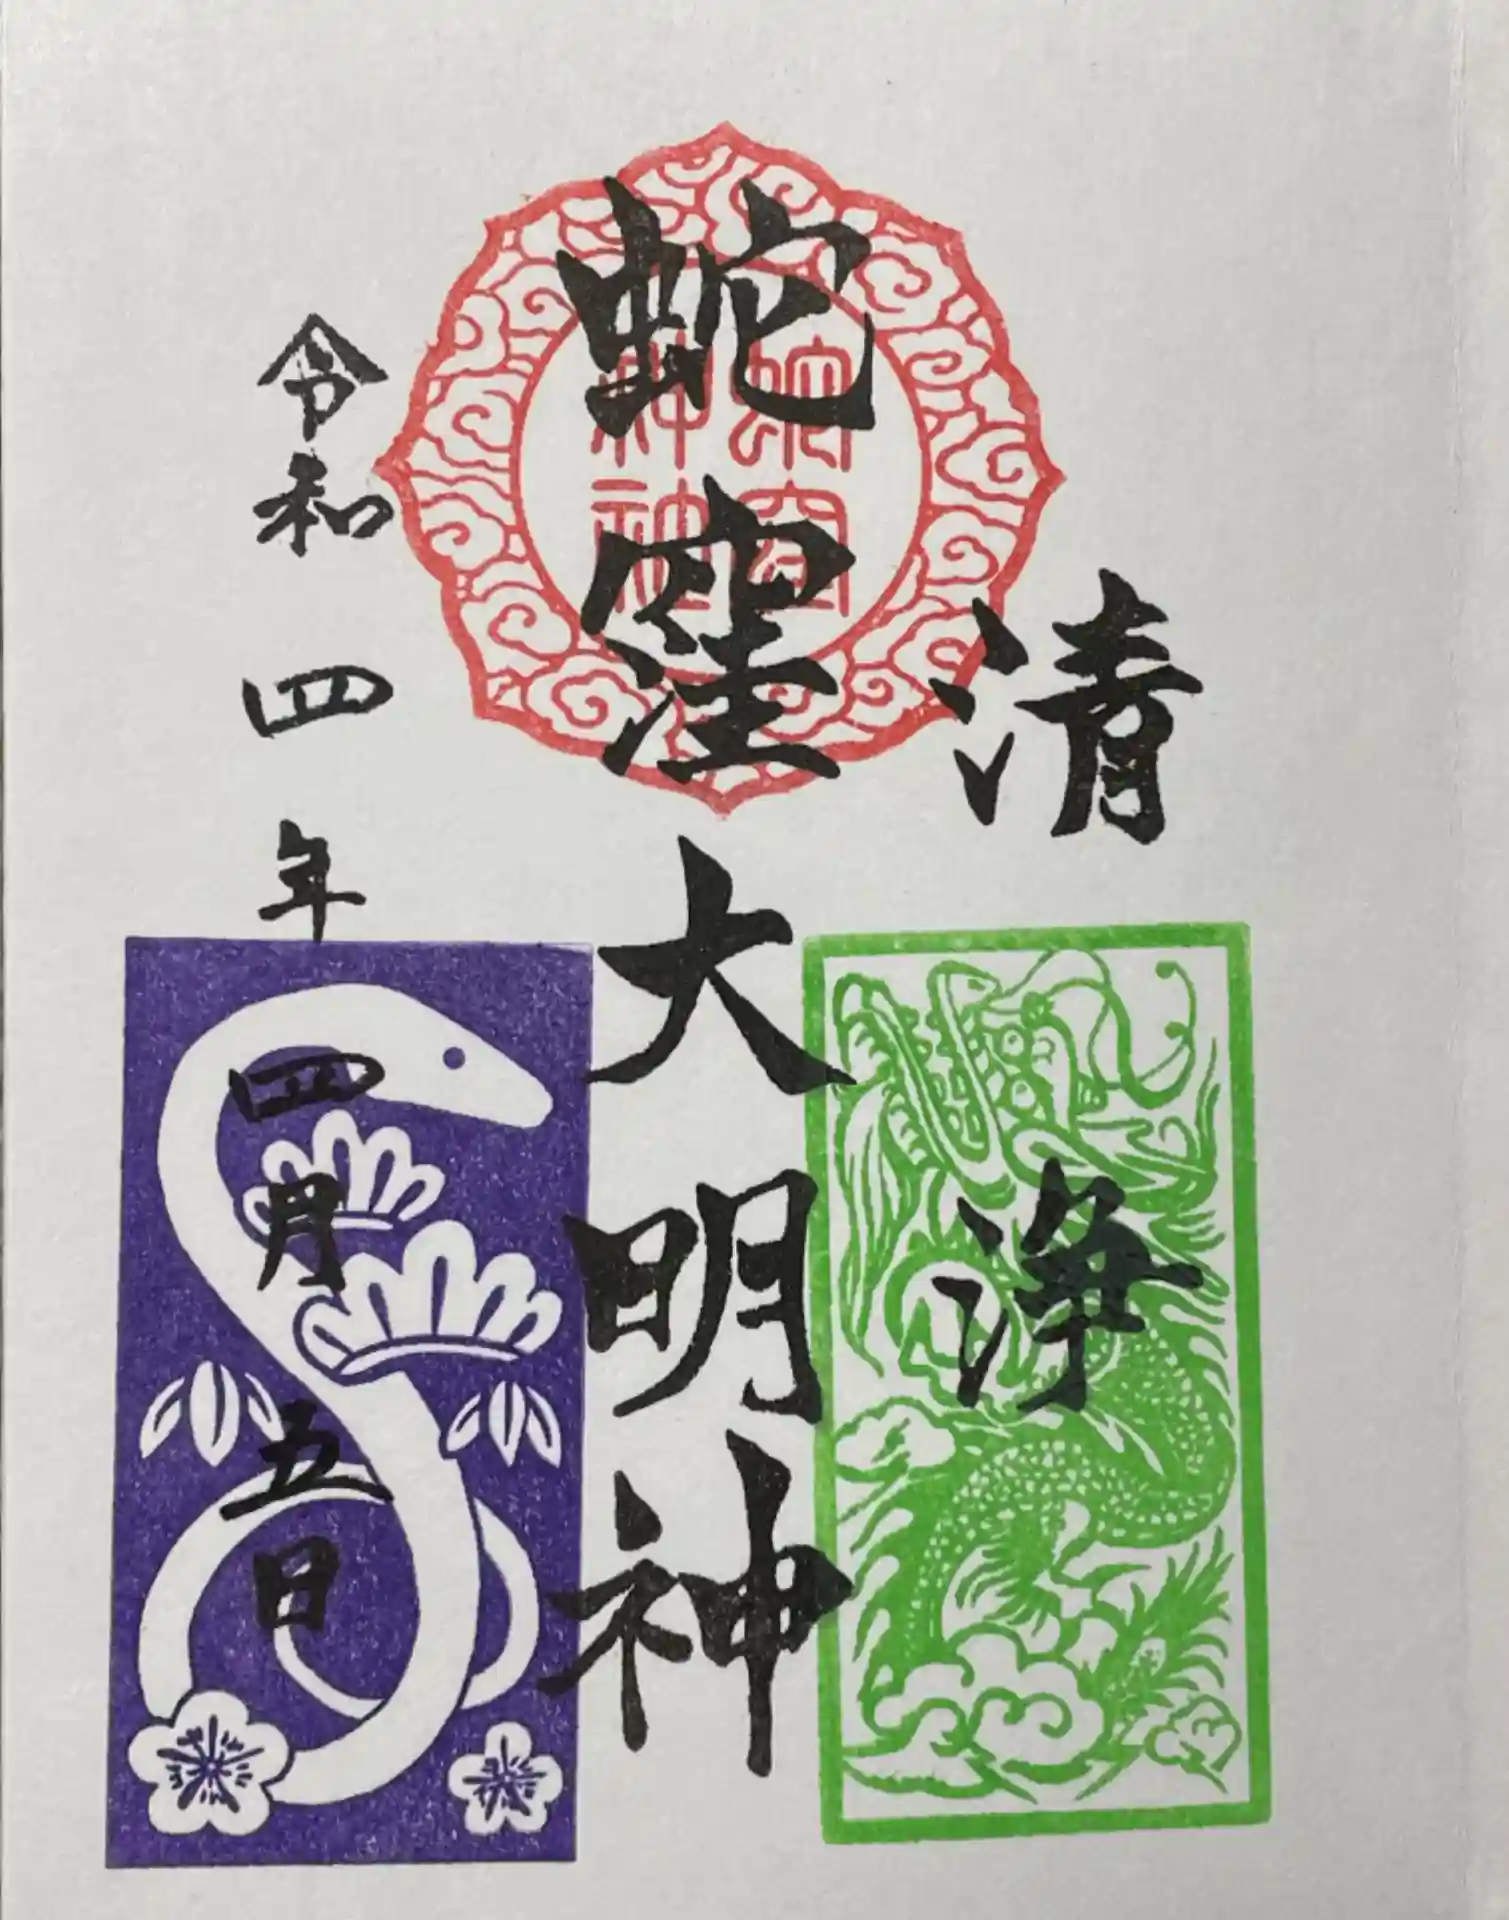 清浄
蛇窪大明神
令和四年四月五日
蛇窪
神社